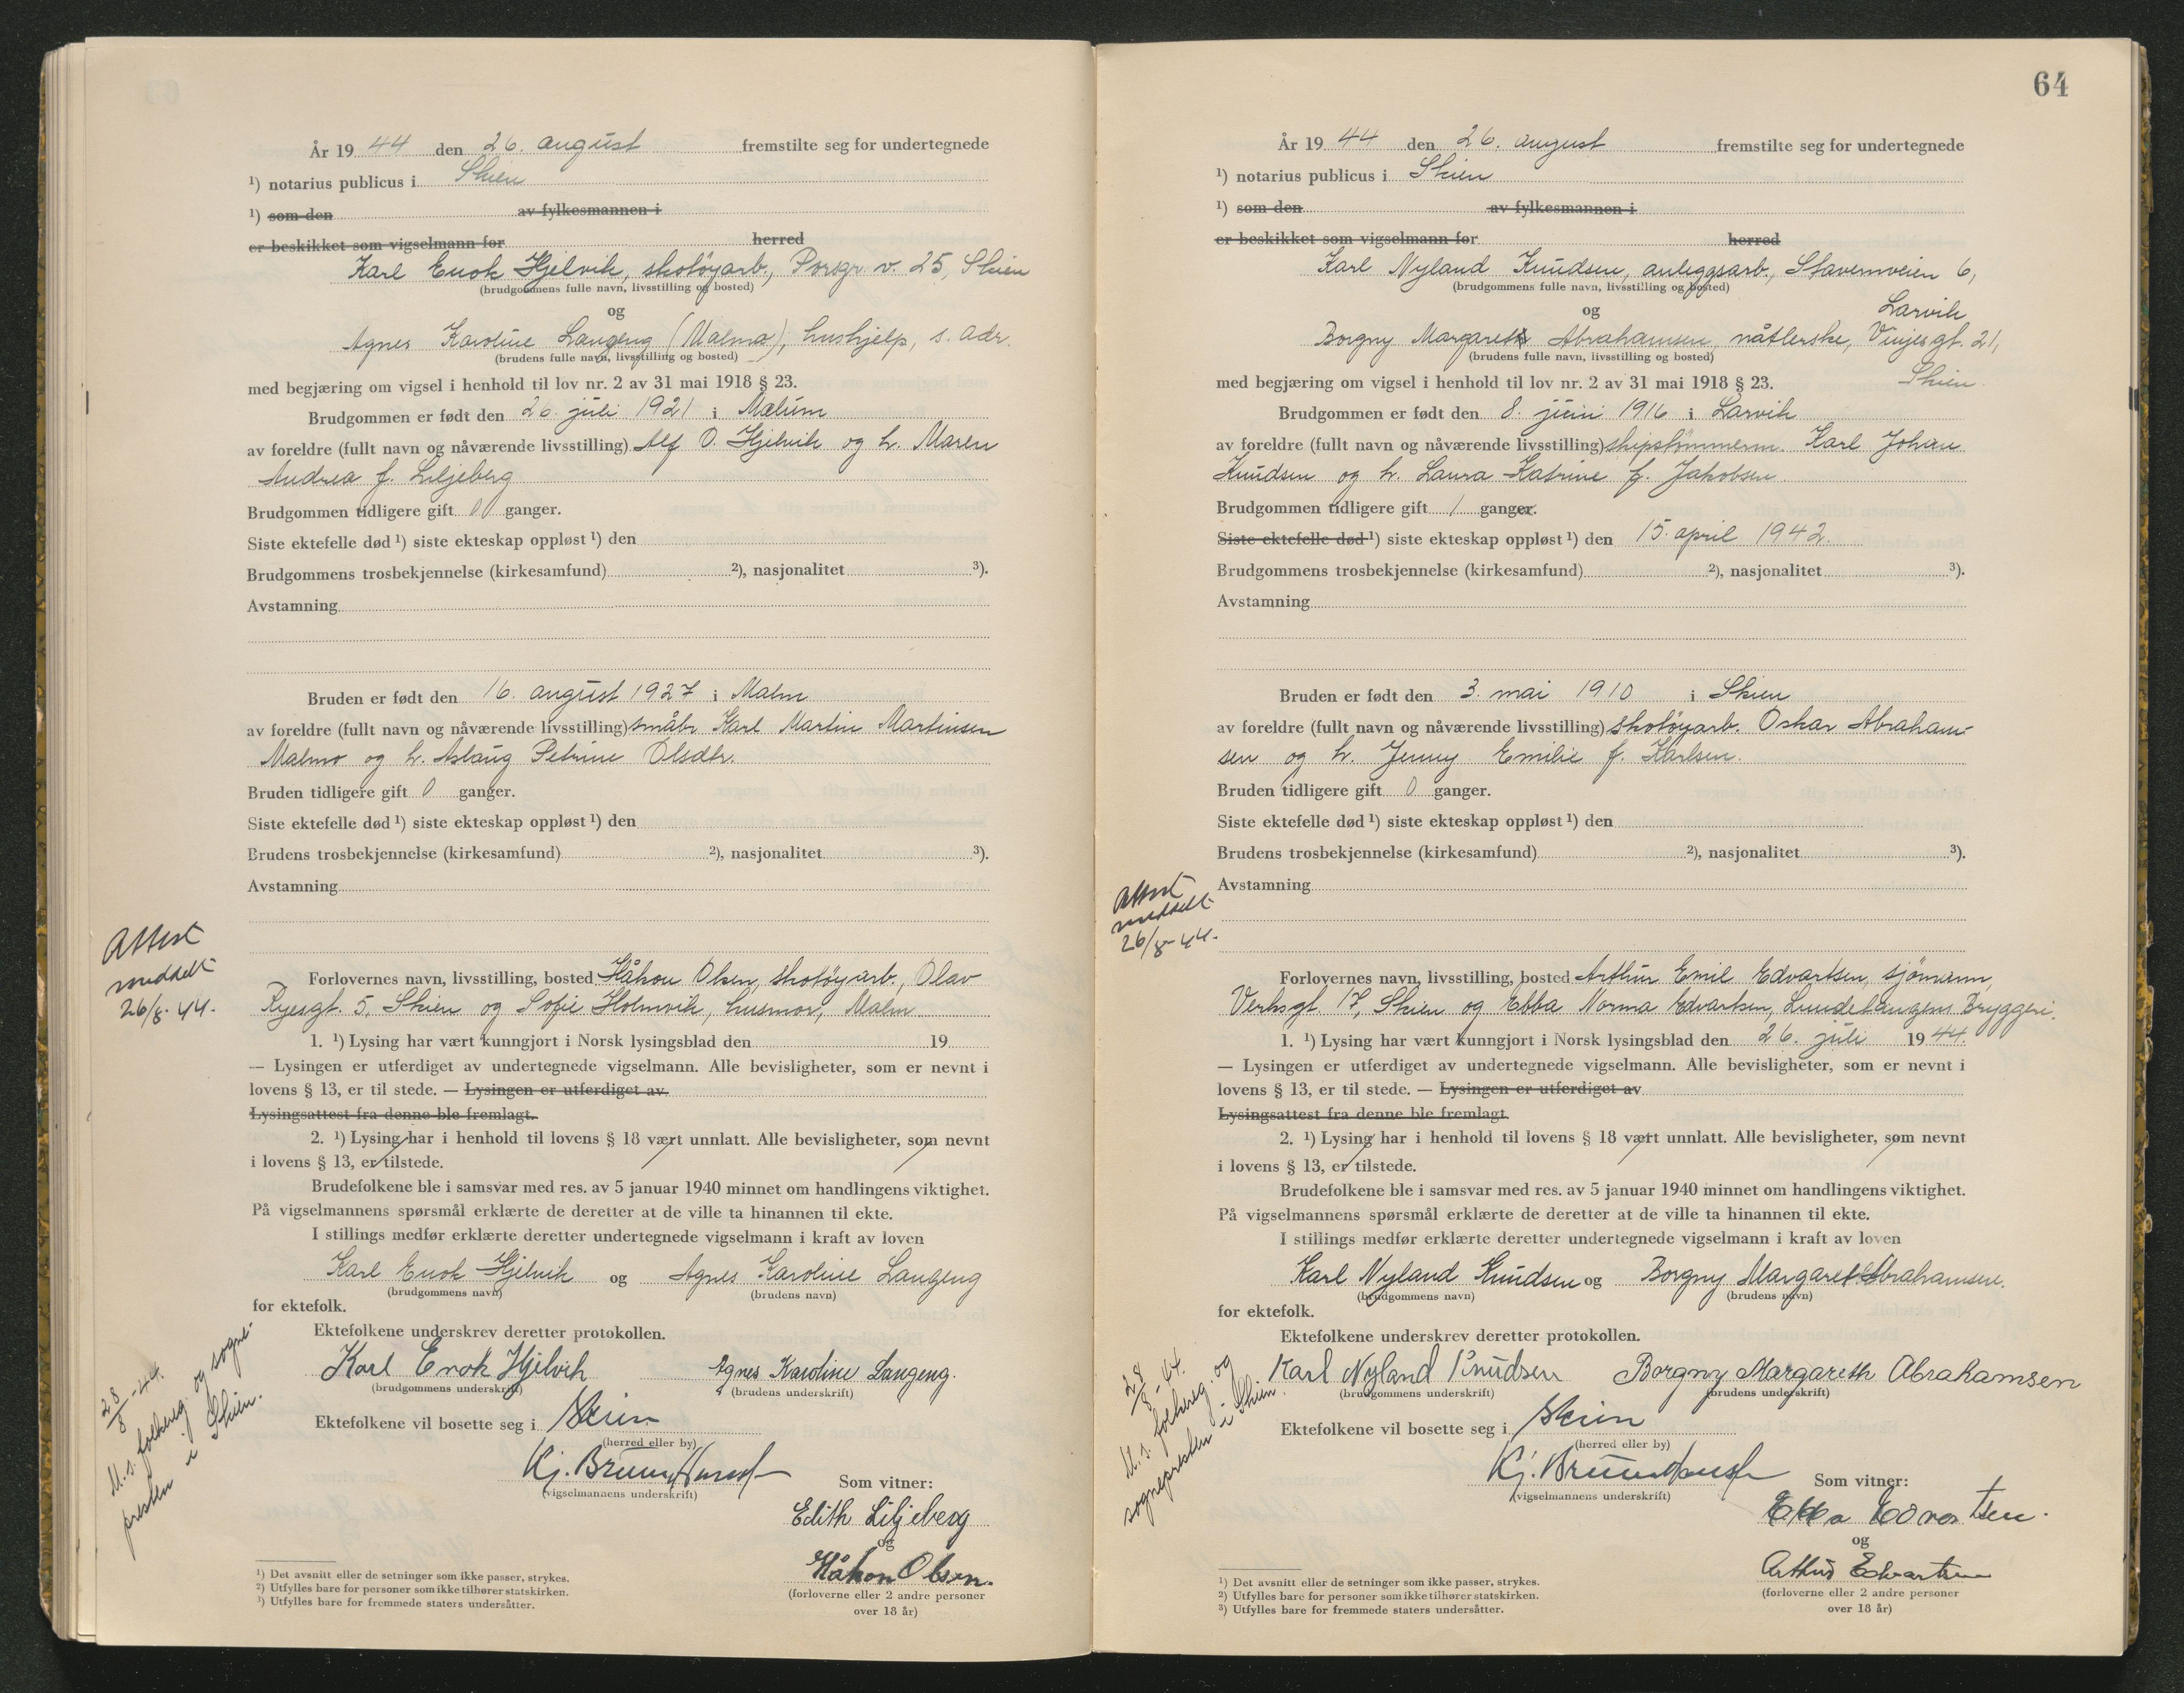 År 19 44 den 26. august fremstilte seg for undertegnede
¹) notarius publicus i Skien
¹) som den av fylkesmannen i
er beskikket som vigselmann for herred
Karl Enok Hjelvik, skotøyarb., Porsgr. v. 25, Skien
(brudgommens fulle navn, livsstilling og bosted)
og
Agnes Karoline Langeng (Malmo), hushjelp, s. adr.
(brudens fulle navn, livsstilling og bosted)
med begjæring om vigsel i henhold til lov nr. 2 av 31 mai 1918 § 23.
Brudgommen er født den 26. juli 1921 i Mælum
av foreldre (fullt navn og nåværende livsstilling) Alf O. Hjelvik og h. Maren
Andrea f. Liljeberg
Brudgommen tidligere gift 0 ganger.
Siste ektefelle død ¹) siste ekteskap oppløst ¹) den
Brudgommens trosbekjennelse (kirkesamfund) ²), nasjonalitet ³).
Avstamning
Bruden er født den 16. august 1927 i Malm
av foreldre (fullt navn og nåværende livsstilling) småbr. Karl Martin Martinsen
Malmo og h. Aslaug Petrine Olsdtr.
Bruden tidligere gift 0 ganger.
Siste ektefelle død ¹) siste ekteskap oppløst ¹) den
Brudens trosbekjennelse (kirkesamfund) ²), nasjonalitet ³).
Avstamning
Attest
meddelt
26/8-44.
Forlovernes navn, livsstilling, bosted Håkon Olsen, skotøyarb., Olav
Ryesgt. 5, Skien og Sofie Holmvik, husmor, Malm
1. ¹) Lysing har vært kunngjort i Norsk lysingsblad den 19
— Lysingen er utferdiget av undertegnede vigselmann. Alle bevisligheter, som er nevnt i
lovens § 13, er til stede. — Lysingen er utferdiget av
Lysingsattest fra denne ble fremlagt.
2. ¹) Lysing har i henhold til lovens § 18 vært unnlatt. Alle bevisligheter, som nevnt
i lovens § 13, er tilstede.
Brudefolkene ble i samsvar med res. av 5 januar 1940 minnet om handlingens viktighet.
På vigselmannens spørsmål erklærte de deretter at de ville ta hinannen til ekte.
I stillings medfør erklærte deretter undertegnede vigselmann i kraft av loven
Karl Enok Hjelvik og Agnes Karoline Langeng
(brudgommens navn) (brudens navn)
for ektefolk.
Ektefolkene underskrev deretter protokollen.
Karl Enok Hjelvik Agnes Karoline Langeng.
(brudgommens underskrift) (brudens underskrift)
Ektefolkene vil bosette seg i Skien
(herred eller by)
28/8-44.
M. s. folkereg. og sogne-
presten i Skien.
Kj. Bruun
(vigselmannens underskrift)
Som vitner:
Edith Liljeberg
og
Håkon Olsen.
(forloverne eller 2 andre personer
over 18 år)
¹) Det avsnitt eller de setninger som ikke passer, strykes.
²) Utfylles bare for personer som ikke tilhører statskirken.
³) Utfylles bare for fremmede staters undersåtter.
64
År 19 44 den 26. august fremstilte seg for undertegnede
¹) notarius publicus i Skien
¹) som den av fylkesmannen i
er beskikket som vigselmann for herred
Karl Nyland Knudsen, anleggsarb., Stavernveien 6,
(brudgommens fulle navn, livsstilling og bosted)
Larvik
og
Borgny Margareth Abrahamsen, nåtlerske, Vinjesgt. 21,
(brudens fulle navn, livsstilling og bosted)
Skien
med begjæring om vigsel i henhold til lov nr. 2 av 31 mai 1918 § 23.
Brudgommen er født den 8. juni 1916 i Larvik
av foreldre (fullt navn og nåværende livsstilling) skipstømmerm. Karl Johan
Knudsen og h. Laura Katrine f. Jakobsen.
Brudgommen tidligere gift 1 ganger.
Siste ektefelle død ¹) siste ekteskap oppløst ¹) den 15. april 1942.
Brudgommens trosbekjennelse (kirkesamfund) ²), nasjonalitet ³).
Avstamning
Bruden er født den 3. mai 1910 i Skien
av foreldre (fullt navn og nåværende livsstilling) skotøyarb. Oskar Abraham-
sen og h. Jenny Emilie f. Karlsen.
Bruden tidligere gift 0 ganger.
Siste ektefelle død ¹) siste ekteskap oppløst ¹) den
Brudens trosbekjennelse (kirkesamfund) ²), nasjonalitet ³).
Avstamning
Attest
meddelt
26/8-44.
Forlovernes navn, livsstilling, bosted Arthur Emil Edvartsen, sjømann,
Verksgt. 17, Skien og Ebba Norma Edvartsen, Lundetangens Bryggeri.
1. ¹) Lysing har vært kunngjort i Norsk lysingsblad den 26. juli 1944.
— Lysingen er utferdiget av undertegnede vigselmann. Alle bevisligheter, som er nevnt i
lovens § 13, er til stede. — Lysingen er utferdiget av
Lysingsattest fra denne ble fremlagt.
2. ¹) Lysing har i henhold til lovens § 18 vært unnlatt. Alle bevisligheter, som nevnt
i lovens § 13, er tilstede.
Brudefolkene ble i samsvar med res. av 5 januar 1940 minnet om handlingens viktighet.
På vigselmannens spørsmål erklærte de deretter at de ville ta hinannen til ekte.
I stillings medfør erklærte deretter undertegnede vigselmann i kraft av loven
Karl Nyland Knudsen og Borgny Margareth Abrahamsen.
(brudgommens navn) (brudens navn)
for ektefolk.
Ektefolkene underskrev deretter protokollen.
Karl Nyland Knudsen Borgny Margareth Abrahamsen
(brudgommens underskrift) (brudens underskrift)
Ektefolkene vil bosette seg i Skien
(herred eller by)
28/8-44.
M. s. folkereg. og
sognepresten i Skien.
Kj. Bruun
(vigselmannens underskrift)
Som vitner:
Ebba Edvartsen.
og
Arthur Edvartsen
(forloverne eller 2 andre personer
over 18 år)
¹) Det avsnitt eller de setninger som ikke passer, strykes.
²) Utfylles bare for personer som ikke tilhører statskirken.
³) Utfylles bare for fremmede staters undersåtter.